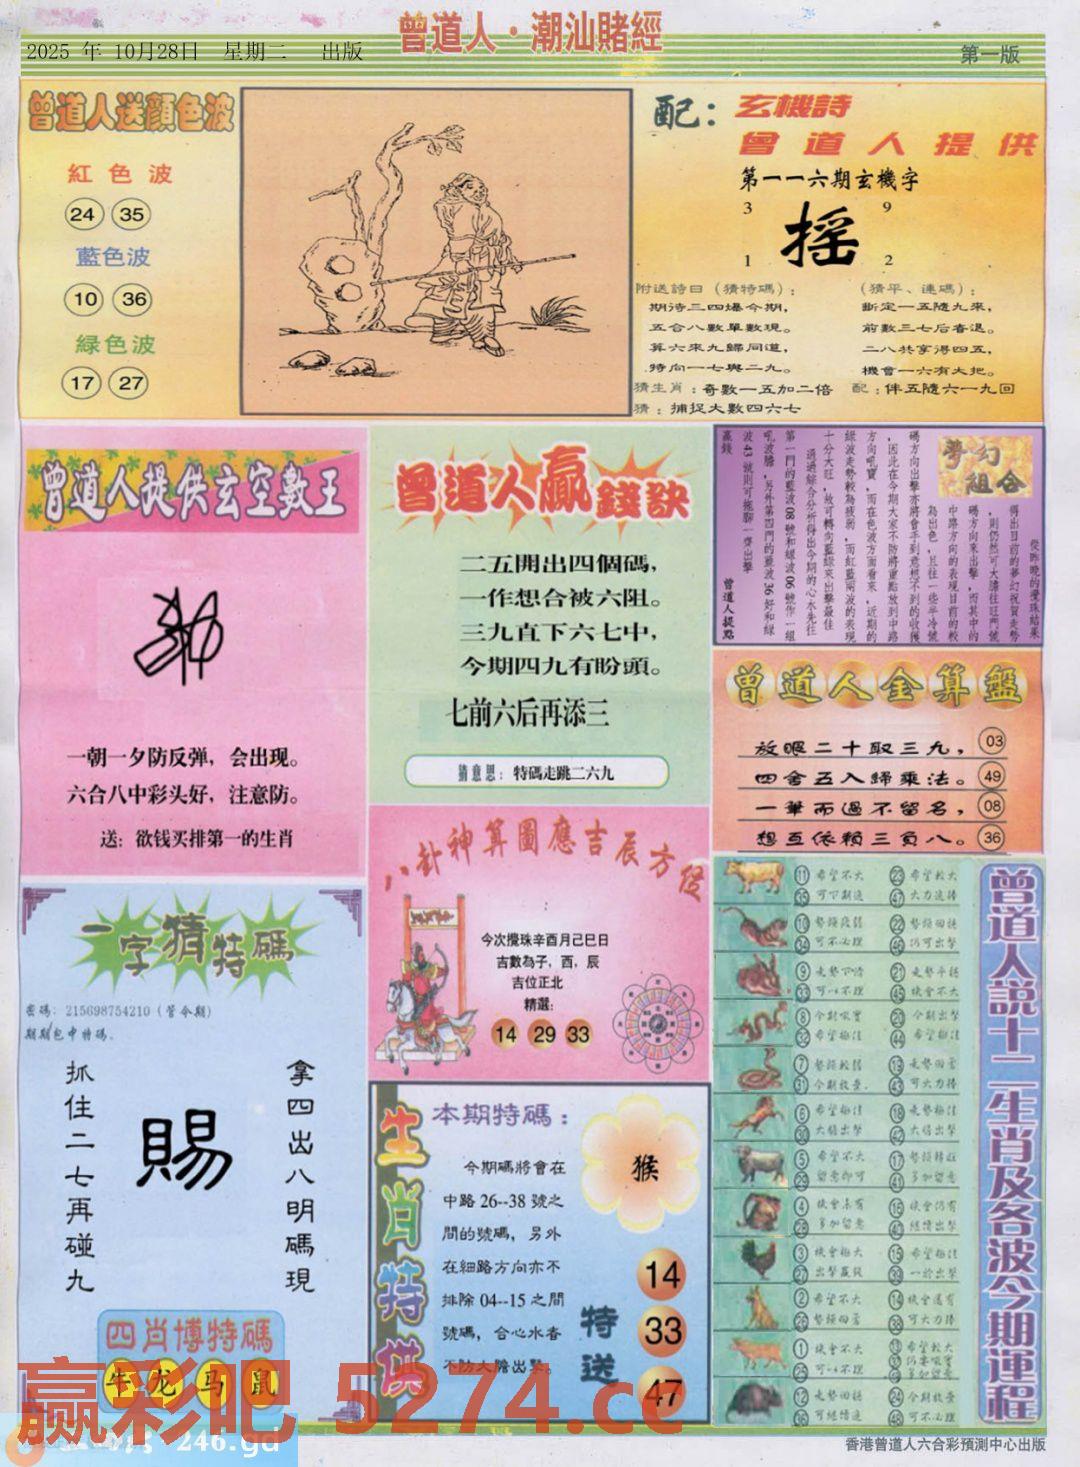 曾道人·潮汕賭經
2025 年 10月28日 星期二 出版
第一版
曾道人送顏色波
紅色波
24 35
藍色波
10 36
綠色波
17 27
配：玄機詩
曾道人提供
第一一六期玄機字
3 9
摇
1 2
附送詩日（猜特碼）：
期待三四爆今期，
五合八數單數現。
算六來九歸同道，
特向一七與二九。
猜生肖：奇數一五加二倍
猜：捕捉大數四六七
（猜平、連碼）：
斷定一五隨九來，
前數三七后春退。
二八共享得四五，
機會一六有大把。
配：伴五隨六一九回
曾道人提供玄空數王
一朝一夕防反弹，会出现。
六合八中彩头好，注意防。
送：欲钱买排第一的生肖
曾道人贏錢訣
二五開出四個碼，
一作想合被六阻。
三九直下六七中，
今期四九有盼頭。
七前六后再添三
猜意思：特碼走跳二六九
夢幻組合
從昨晚的攪珠結果
得出目前的夢幻祝賀走勢
，則仍然可大膽往旺門號
碼方向來出擊，而其中的
中路方向的表現目前的較
為出色，且往一些半冷號
碼方向出擊亦將會手到意想不到的收獲
，因此在今期大家不防將重點放到中路
方向吼買，而在色波方面看來，近期的
綠波走勢較為疲弱，而紅藍兩波的表現
十分大旺，故可轉向藍綠來出擊最佳
通過綜合分析得出今期的心水先往
第一門的藍波08號和綠波06號作一組
吼波膽，另外第四門的藍波36好和綠
波43號則可拖腳一齊出擊
贏錢
曾道人提點
曾道人金算盤
放眼二十取三九， 03
四舍五入歸乘法。 49
一筆而過不留名， 08
想互依賴三負八。 36
八卦神算圖應吉辰方位
今次攪珠辛酉月己巳日
吉數為子，酉，辰
吉位正北
精選：
14 29 33
一字猜特碼
密碼：215698754210（管今期）
期期包中特碼.
抓住二七再碰九
賜
拿四出八明碼現
四肖博特碼
牛 龙 马 鼠
生肖特供
本期特碼：
今期碼將會在
中路26--38號之
間的號碼，另外
在細路方向亦不
排除04--15之間
號碼，合心水者
不防大膽出擊。
猴
特送
14
33
47
曾道人説十二生肖及各波今期運程
11 希望不大 23 希望較大
35 可下期追 47 大力追捧
22 勢頭回揚
34 可不必理 46 仍可出擊
21 走勢平穩
45 機會不大
8 今期吼實 20 今期出擊
7 勢頭較弱 19 走勢回高
31 今期放棄. 43 可大力捧
30 大膽出擊 42 大膽出擊
5 希望不大
29 留意即可 41 多加留意
4 機會未有 16 機會仍有
28 多加留意 40 繼續出擊
3 機會極大
27 出擊贏錢 39 一於出擊
2 希望不大 14 機會還有
38 可大力捧
1 機會不大 希望較大
12 走勢回揚 24 今期放棄
36 可繼續追 48 可不必理
香港曾道人六合彩預測中心出版
赢彩吧 5274.cc
246.gd